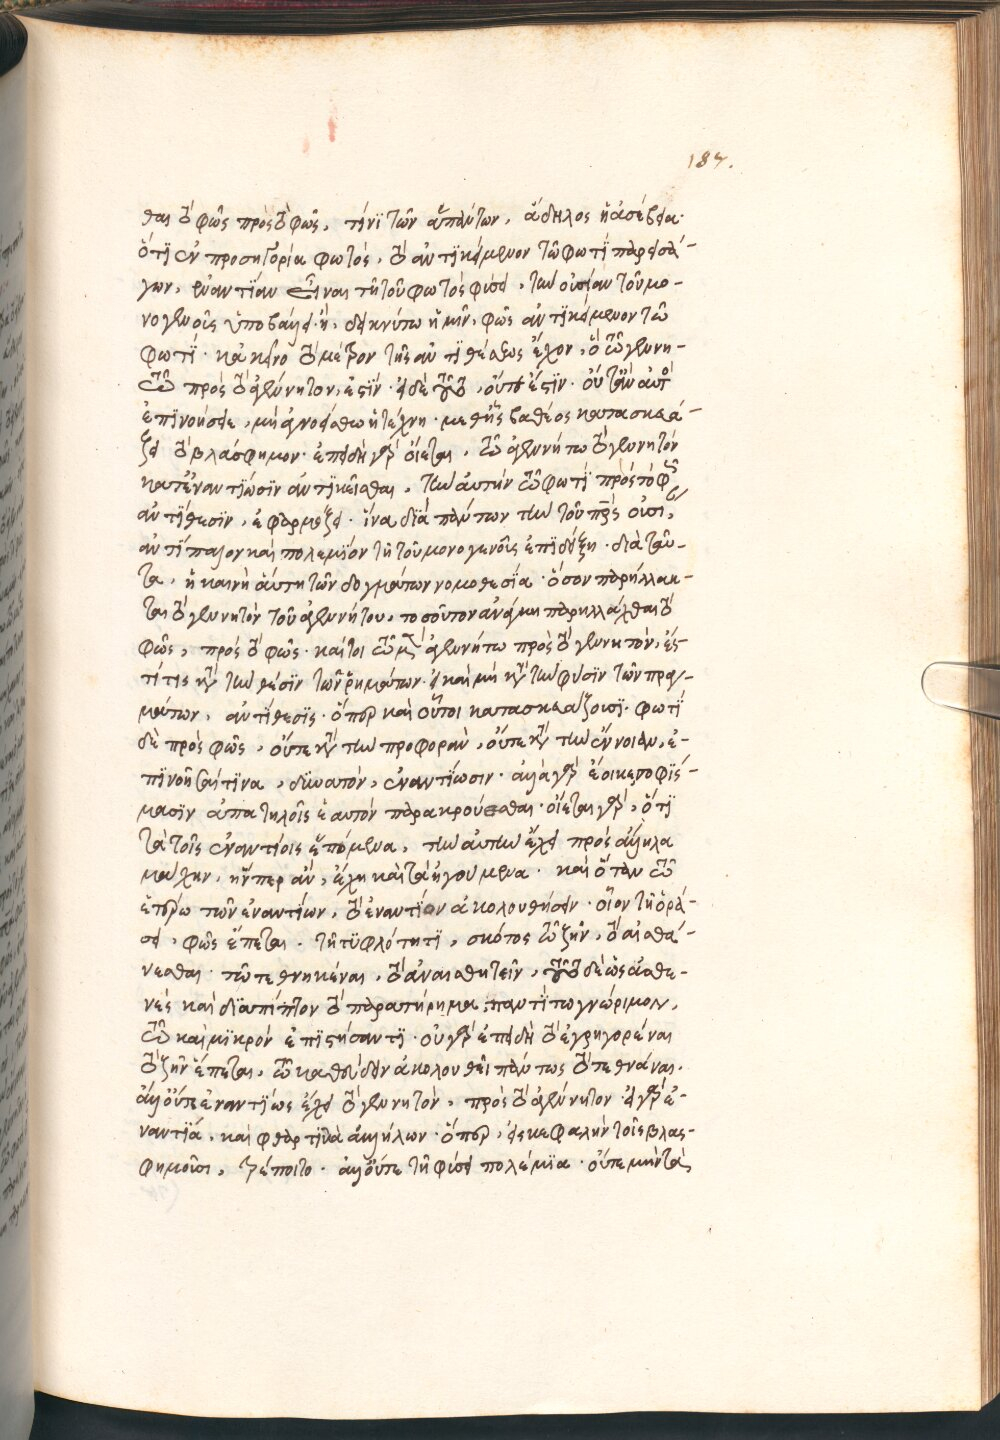 187.
θαι τὸ φῶς πρὸς τὸ φῶς, τίνι τῶν ἁπάντων, ἄδηλος ἡ ἀσέβεια·
ὅτι ἐν προσηγορία φωτὸς, τὸ ἀντικείμενον τῶ φωτὶ παρεισά-
γων, ἐναντίαν εἶναι τῆ τοῦ φωτὸς φύσει, τὴν οὐσίαν τοῦ μο-
νογενοῦς ὑποβάλλει· ἢ, δεικνύτω ἡμῖν, φῶς ἀντικείμενον τῶ
φωτί· κἀκεῖνο τὸ μέτρον τῆς ἀντιθέσεως ἔχον, ὃ τῶ γεννη-
τῶ πρὸς τὸ ἀγέννητον, ἐστίν· εἰ δὲ τοῦτο, οὔτε ἔστιν· οὔτ' ἂν αὐτὸ
ἐπινοήσειε, μὴ ἀγνοείσθω ἡ τέχνη· μεθ' ἧς βαθέος κατασκευά-
ζει τὸ βλάσφημον· ἐπειδὴ γὰρ οἴεται, τῶ ἀγεννήτω τὸ γεννητὸν
κατ' ἐναντίωσιν ἀντικεῖσθαι, τὴν αὐτὴν τῶ φωτὶ πρὸς τὸ φῶς
ἀντίθεσιν, ἐφαρμόζει· ἵνα διὰ πάντων τὴν τοῦ πρς οὐσί,
ἀντίπαλον καὶ πολεμίον τῆ τοῦ μονογενοῦς ἐπιδείξη· διὰ ταῦ-
τα, ἡ καινὴ αὕτη τῶν δογμάτων νομοθεσία· ὅσον παρήλλακ-
ται τὸ γεννητὸν τοῦ ἀγεννήτου, τοσοῦτον ἀνάγκη παρηλλάχθαι τὸ
φῶς, πρὸς τὸ φῶς· καίτοι τῶ μὲν ἀγεννήτω πρὸς τὸ γεννητὸν, ἐσ-
τί τις κατὰ τὴν θέσιν τῶν ῥημάτων· εἰ καὶ μὴ κατὰ τὴν φύσιν τῶν πραγ-
μάτων, ἀντίθεσις· ὅπερ καὶ οὗτοι κατασκευάζουσι· φωτὶ
δὲ πρὸς φῶς, οὔτε κατὰ τὴν προφορὰν, οὔτε κατὰ τὴν ἔννοιαν, ἐ-
πινοῆσαί τινα, δυνατὸν, ἐναντίωσιν· ἀλλὰ γὰρ ἔοικε σοφίσ-
μασιν ἀπατηλοῖς ἑαυτὸν παρακρούεσθαι· οἴεται γὰρ, ὅτι
τὰ τοῖς ἐναντίοις ἑπόμενα, τὴν αὐτὴν ἔχει πρὸς ἄλληλα
μάχην, ἥνπερ ἂν, ἔχη καὶ τὰ ἡγούμενα· καὶ ὅταν τῶ
ἑτέρω τῶν ἐναντίων, τὸ ἐναντίον ἀκολουθήσειεν· οἷον τῆ ὁρά-
σει, φῶς ἕπεται· τῆ τυφλότητι, σκότος τῶ ζῆν, τὸ αἰσθά-
νεσθαι· τῶ τεθνηκέναι, τὸ ἀναισθητεῖν, τοῦτο δὲ ὡς ἀσθε-
νὲς καὶ διαπίπτον τὸ παρατήρημα, παντί που γνώριμον,
τῶ καὶ μικρὸν ἐπιστήσαντι· οὐ γὰρ ἐπειδὴ τὸ ἐγρηγορέναι
τὸ ζῆν ἕπεται, τῶ καθεύδειν ἀκολουθεῖ πάντως τὸ τεθνάναι.
ἀλλ' οὔτε ἐναντίως ἔχει τὸ γεννητὸν, πρὸς τὸ ἀγέννητον εἰ γὰρ ἐ-
ναντία, καὶ φθαρτικὰ ἀλλήλων· ὅπερ, εἰς κεφαλὴν τοῖς βλασ-
φημοῦσι, τρέποιτο· ἀλλ' οὔτε τῆ φύσει πολέμια· οὔτε μὴν τὰς